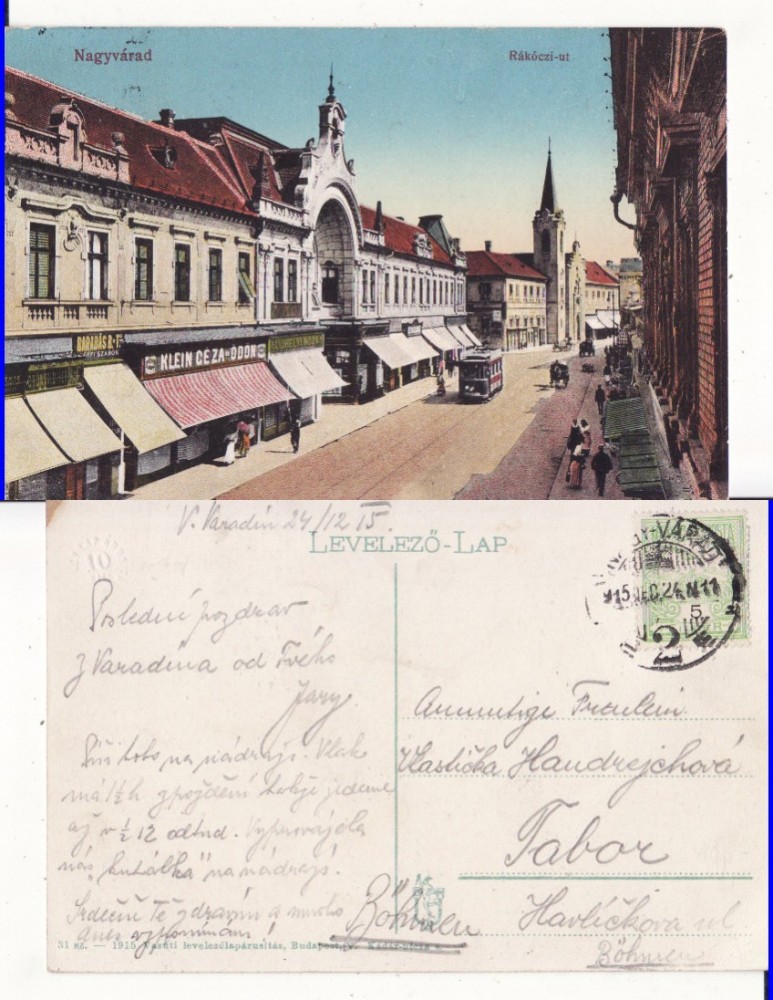 Nagyvárad
Rákóczi-ut
BARABÁS
KLEIN GÉZA
ODOR
V. Varadín 24/12 15.
LEVELEZŐ-LAP
10
NAGY-VÁRAD
915 DEC. 24. N 11
2
5
Poslední pozdrav
z Varadína od Tvého
Jary.
Píši toto na nádraží. Vlak
má 1/2 h zpoždění takže jedeme
až v 1/2 12 odtud. Vyprovázela
nás „kutálka" na nádraží.
Srdečně Tě zdravím a mnoho
dnes vzpomínám!
Anmutige Fräulein
Vlastička Handrejchová
Tabor
Böhmen
Havlíčkova ul
Böhmen
31 sz. — 1915 Vasúti levelezőlapárusitás, Budapest